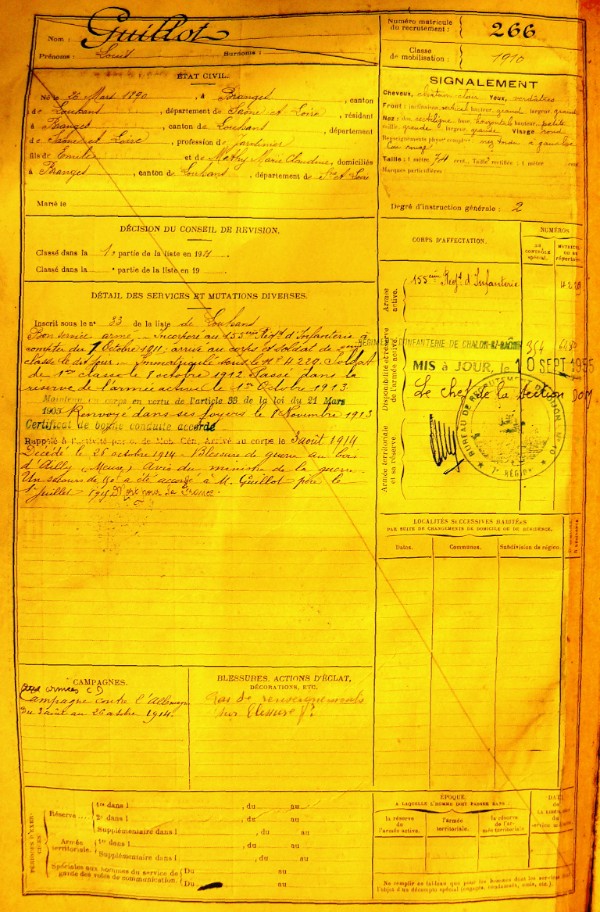 Nom : Guillot
Prénoms : Louis Surnoms :
Numéro matricule du recrutement : 266
Classe de mobilisation : 1910
ÉTAT CIVIL.
Né le 26 Mars 1890, à Branges, canton
de Louhans, département de Saône et Loire, résidant
à Branges, canton de Louhans, département
de Saône et Loire, profession de jardinier
fils de et de Mathy Marie Claudine, domiciliés
à Branges, canton de Louhans, département de Sne et Loire
Marié le
SIGNALEMENT
Cheveux, châtain clair Yeux, verdâtres
Front : inclinaison vertical hauteur grand largeur grande
Nez : dos rectiligne base horizontale hauteur petite
saillie grande largeur grande Visage rond
Renseignements physion. complém.
Taille : 1 mètre 74 cent. Taille rectifiée : 1 mètre cent.
Marques particulières
Degré d'instruction générale : 2
DÉCISION DU CONSEIL DE REVISION.
Classé dans la 1e partie de la liste en 1911
Classé dans la partie de la liste en 19
CORPS D'AFFECTATION.
NUMÉROS
AU CONTRÔLE SPÉCIAL.
MATRICULE OU AU RÉPERTOIRE
Armée active.
155ème Régt d'Infanterie
4229
Disponibilité et réserve de l'armée active.
RÉGIMENT D'INFANTERIE DE CHALON-S/-SAÔNE
MIS à JOUR, le 10 SEPT 1955
Le chef de la Section DOM
BUREAU DE RECRUTEMENT
7e RÉGION
Armée territoriale et sa réserve.
DÉTAIL DES SERVICES ET MUTATIONS DIVERSES.
Inscrit sous le n° 33 de la liste de Louhans
Bon service armé. Incorporé au 155ème Régt d'Infanterie à
compter du 9 Octobre 1911, arrivé au corps et soldat de 2ème
classe le dit jour. Immatriculé sous le N° 4229. Soldat
de 1ère classe le 8 octobre 1912. Classé dans la
réserve de l'armée active le 1er Octobre 1913
Maintenu au corps en vertu de l'article 33 de la loi du 21 Mars
1905 Renvoyé dans ses foyers le 8 Novembre 1913
Certificat de bonne conduite accordé
Rappelé à l'activité par o. de Mob. Gén. Arrivé au corps le 3 août 1914
Décédé le 26 octobre 1914. Blessure de guerre au bois
d'Ailly, Meuse, Avis du ministre de la guerre.
Un secours de 150f a été accordé à M. Guillot père le
1er juillet 1915
LOCALITÉS SUCCESSIVES HABITÉES
PAR SUITE DE CHANGEMENTS DE DOMICILE OU DE RÉSIDENCE.
Dates. Communes. Subdivision de région.
CAMPAGNES.
Campagne contre l'Allemagne
du 3 août au 26 octobre 1914.
BLESSURES, ACTIONS D'ÉCLAT,
DÉCORATIONS, ETC.
Pas de renseignements
sur blessure
PÉRIODES D'EXERCICES
Réserve
1re dans l , du au
2e dans l , du au
Supplémentaire dans l , du au
Armée territoriale.
1re dans l , du au
Supplémentaire dans l , du au
Spéciales aux hommes du service de garde des voies de communication.
Du au
Du au
ÉPOQUE
À LAQUELLE L'HOMME DOIT PASSER DANS
la réserve de l'armée active.
l'armée territoriale.
la réserve de l'armée territoriale
DATE DE LA LIBÉRATION DU SERVICE